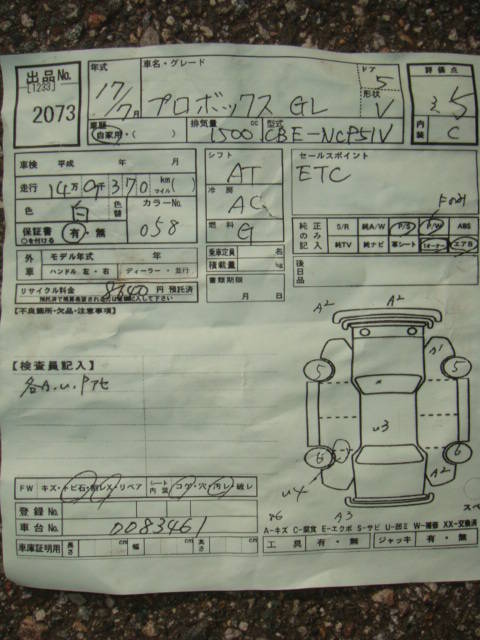 出品No.
[1233]
2073
年式
17/7月
車名・グレード
プロボックス GL
ドア
5
形状
V
評価点
3.5
内装
C
車歴
自家用・( )
排気量
1500 cc
型式
CBE-NCP51V
車検 平成 年 月
走行 14万0千370 km マイル( )
色 白 色替
カラーNo.
058
保証書 有・無
○を付ける
シフト
AT
冷房
AC
燃料
G
セールスポイント
ETC
純正のみ記入
S/R 純A/W P/S P/W ABS
純TV 純ナビ 革シート エアB
外車
モデル年式 年
ハンドル 左・右 ディーラー・並行
乗車定員 名
積載量 kg
書類期限
月 日
後日品
リサイクル料金 円 預託済
【不良箇所・欠品・注意事項】
【検査員記入】
A2 A2
A1
5 5
U3
6 6
A2
U4
A3
FW キズ・トビ石・リペア
シート内装 コゲ・穴・汚レ・破レ
登録No.
車台No. 0083461
A-キズ C-腐食 E-エクボ S-サビ U-凹ミ W-補修 XX-交換済
車庫証明用 長さ cm 幅 cm 高さ cm
工具 有・無 ジャッキ 有・無